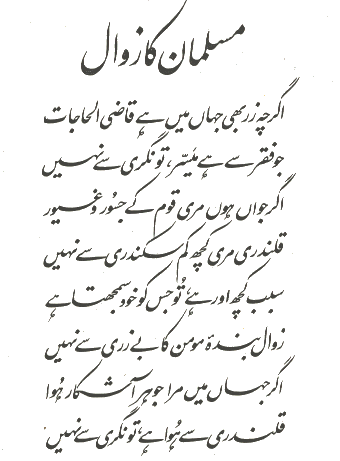 مسلمان کا زوال
اگرچہ زر بھی جہاں میں ہے قاضی الحاجات
جو فقر سے ہے میسّر، تونگری سے نہیں
اگر جواں ہوں مری قوم کے جسُور و غیور
قلندری مری کچھ کم سکندری سے نہیں
سبب کچھ اور ہے، تُو جس کو خود سمجھتا ہے
زوال بندۂ مومن کا بے زری سے نہیں
اگر جہاں میں مرا جوہر آشکار ہُوا
قلندری سے ہُوا ہے، تونگری سے نہیں